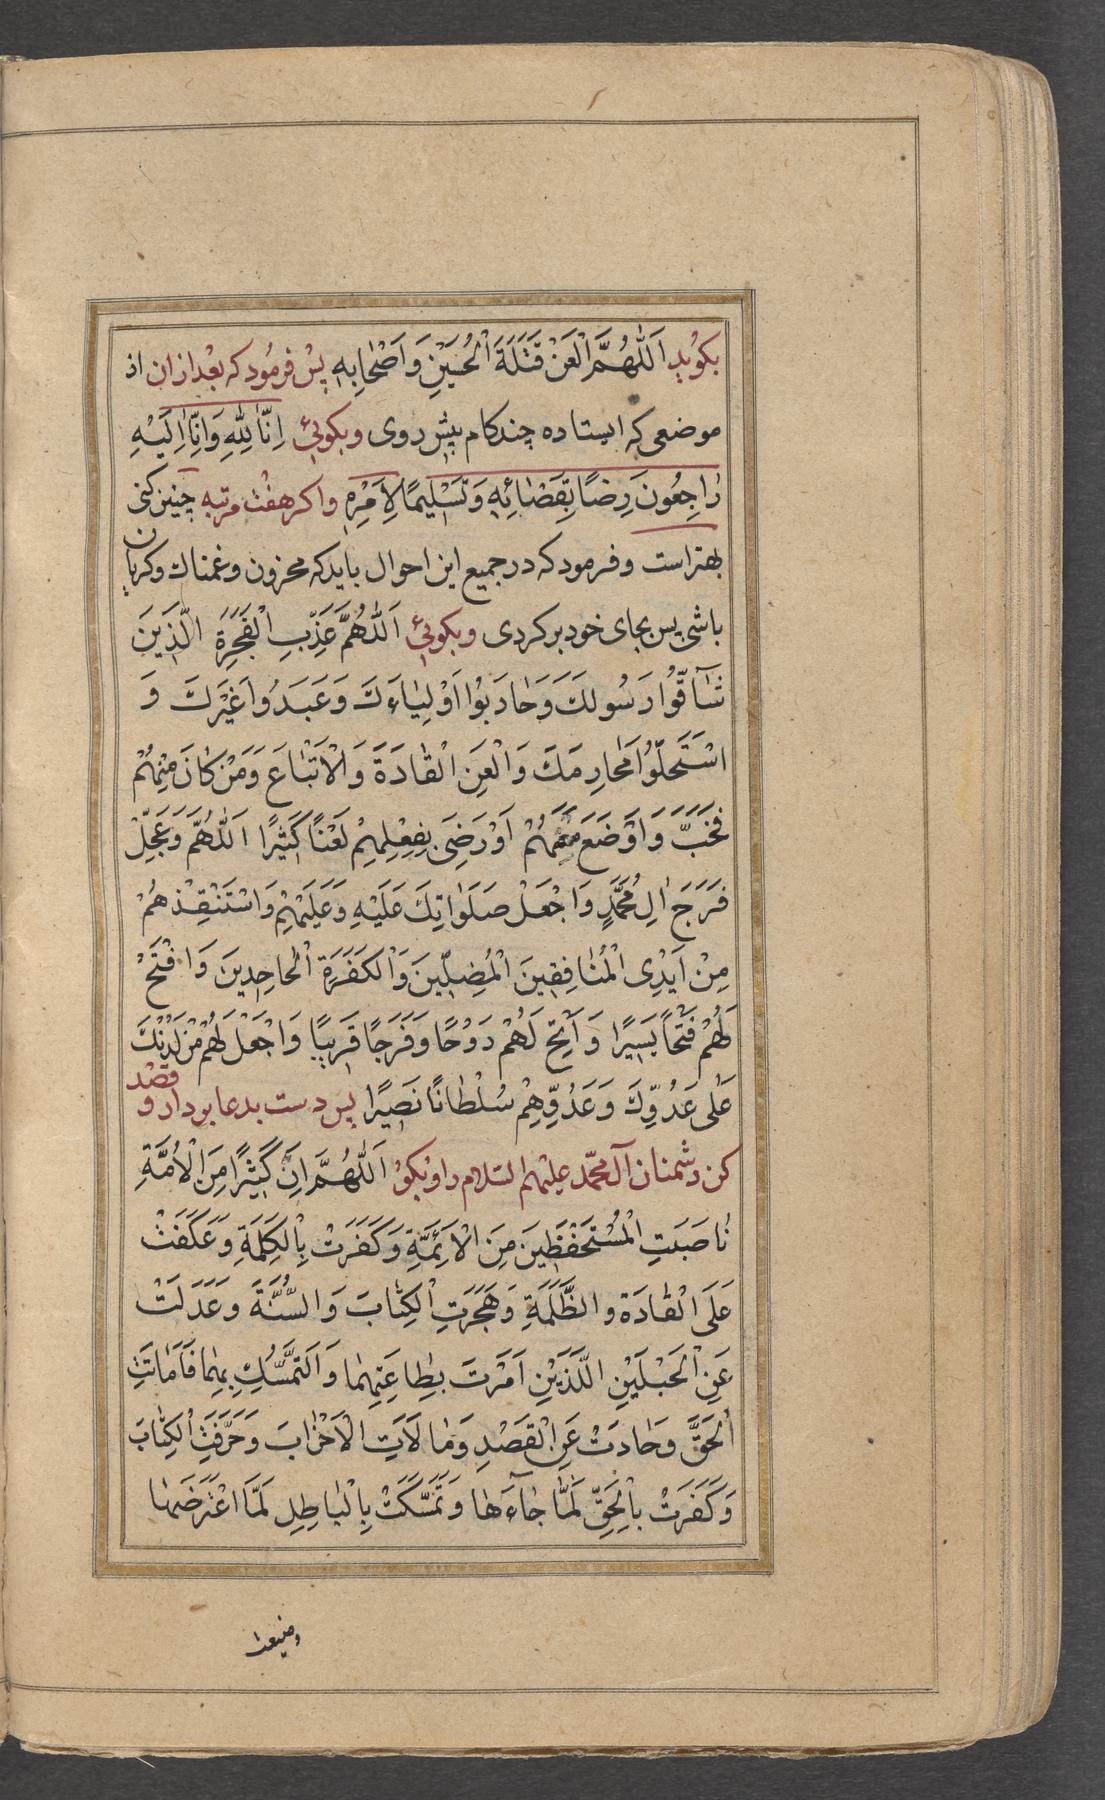 بکوید اَللّٰهُمَّ الْعَنْ قَتَلَةَ الْحُسَیْنِ وَاَصْحٰابِهِ پس فرمود که بعد ازان از
موضعی که ایستاده چند کام پیش روی وبکوئی اِنّٰا لِلّٰهِ وَاِنّٰا اِلَیْهِ
رٰاجِعُونَ رِضًا بِقَضٰائِهِ وَتَسْلِیمًا لِاَمْرِهِ واکر هفت مرتبه چنین کنی
بهتر است وفرمود که در جمیع این احوال باید که محزون وغمناك وکریان
باشی پس بجای خود بر کردی وبکوئی اَللّٰهُمَّ عَذِّبِ الْفَجَرَةَ الَّذِینَ
شٰآقُّوا رَسُولَكَ وَحٰارَبُوا اَوْلِیٰاءَكَ وَعَبَدُوا غَیْرَكَ وَ
اسْتَحَلُّوا مَحٰارِمَكَ وَالْعَنِ الْقٰادَةَ وَالْاَتْبٰاعَ وَمَنْ كٰانَ مِنْهُمْ
فَخَبَّ وَاَوْضَعَ مَعَهُمْ اَوْ رَضِیَ بِفِعْلِهِمْ لَعْنًا كَثِیْرًا اَللّٰهُمَّ وَعَجِّلْ
فَرَجَ اٰلِ مُحَمَّدٍ وَاجْعَلْ صَلَوٰاتِكَ عَلَیْهِ وَعَلَیْهِمْ وَاسْتَنْقِذْهُمْ
مِنْ اَیْدِی الْمُنٰافِقِینَ الْمُضِلِّینَ وَالْكَفَرَةِ الْجٰاحِدِینَ وَافْتَحْ
لَهُمْ فَتْحًا یَسِیْرًا وَاَتِحْ لَهُمْ رَوْحًا وَفَرَجًا قَرِیبًا وَاجْعَلْ لَهُمْ مِنْ لَدُنْكَ
عَلٰی عَدُوِّكَ وَعَدُوِّهِمْ سُلْطٰانًا نَصِیْرًا پس دست بدعا بردار و قصد
کن دشمنان آل محمّد علیهم السّلام را وبکو اَللّٰهُمَّ اِنَّ كَثِیْرًا مِنَ الْاُمَّةِ
نٰاصَبَتِ الْمُسْتَحْفَظِینَ مِنَ الْاَئِمَّةِ وَكَفَرَتْ بِالْكَلِمَةِ وَعَكَفَتْ
عَلَی الْقٰادَةِ والظَّلَمَةِ وَهَجَرَتِ الْكِتٰابَ وَالسُّنَّةَ وَعَدَلَتْ
عَنِ الْحَبْلَیْنِ اللَّذَیْنِ اَمَرْتَ بِطٰاعَتِهِمٰا وَالتَّمَسُّكِ بِهِمٰا فَاَمٰاتَتِ
الْحَقَّ وَحٰادَتْ عَنِ الْقَصْدِ وَمٰالَاَتِ الْاَحْزٰابَ وَحَرَّفَتِ الْكِتٰابَ
وَكَفَرَتْ بِالْحَقِّ لَمّٰا جٰآءَهٰا وَتَمَسَّكَتْ بِالْبٰاطِلِ لَمَّا اعْتَرَضَهٰا
وضیعت